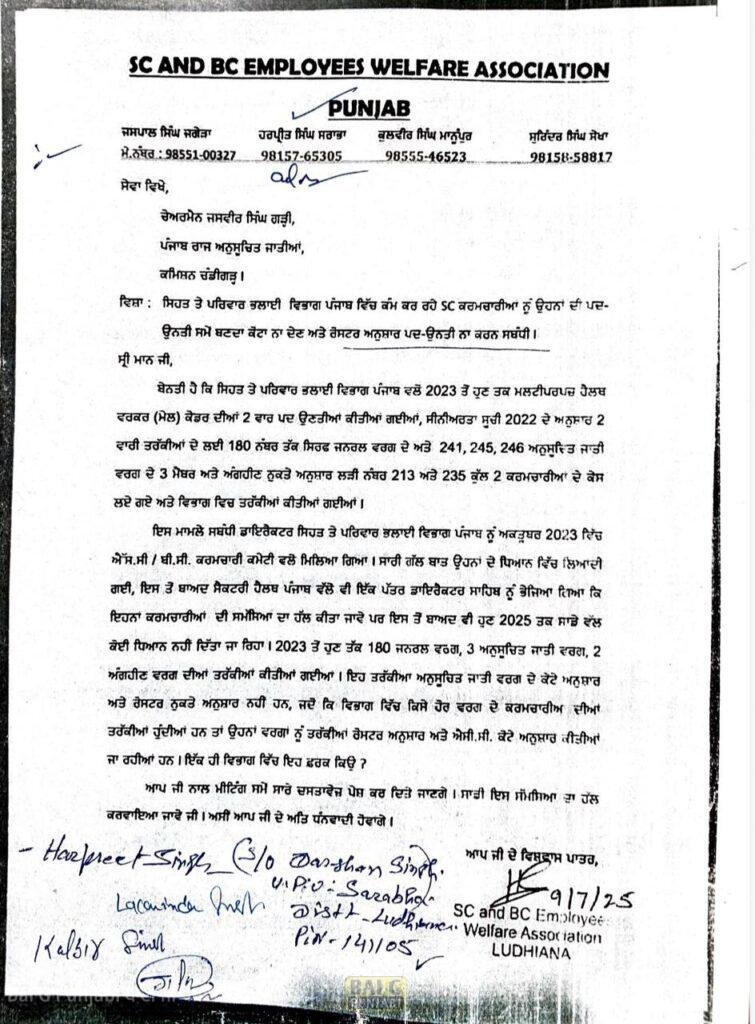 SC AND BC EMPLOYEES WELFARE ASSOCIATION
PUNJAB
ਜਸਪਾਲ ਸਿੰਘ ਜਗੇੜਾ ਹਰਪ੍ਰੀਤ ਸਿੰਘ ਸਰਾਭਾ ਕੁਲਵੀਰ ਸਿੰਘ ਮਾਨੂੰਪੁਰ ਸੁਰਿੰਦਰ ਸਿੰਘ ਸੋਖਾ
ਮੋ.ਨੰਬਰ : 98551-00327 98157-65305 98555-46523 98158-58817
ਸੇਵਾ ਵਿਖੇ,
ਚੇਅਰਮੈਨ ਜਸਵੀਰ ਸਿੰਘ ਗੜ੍ਹੀ,
ਪੰਜਾਬ ਰਾਜ ਅਨੁਸੂਚਿਤ ਜਾਤੀਆਂ,
ਕਮਿਸ਼ਨ ਚੰਡੀਗੜ੍ਹ।
ਵਿਸ਼ਾ : ਸਿਹਤ ਤੇ ਪਰਿਵਾਰ ਭਲਾਈ ਵਿਭਾਗ ਪੰਜਾਬ ਵਿੱਚ ਕੰਮ ਕਰ ਰਹੇ SC ਕਰਮਚਾਰੀਆ ਨੂੰ ਉਹਨਾਂ ਦੀ ਪਦ-
ਉਨਤੀ ਸਮੇਂ ਬਣਦਾ ਕੋਟਾ ਨਾ ਦੇਣ ਅਤੇ ਰੋਸਟਰ ਅਨੁਸ਼ਾਰ ਪਦ-ਉਨਤੀ ਨਾ ਕਰਨ ਸਬੰਧੀ।
ਸ੍ਰੀ ਮਾਨ ਜੀ,
ਬੇਨਤੀ ਹੈ ਕਿ ਸਿਹਤ ਤੇ ਪਰਿਵਾਰ ਭਲਾਈ ਵਿਭਾਗ ਪੰਜਾਬ ਵਲੋਂ 2023 ਤੋਂ ਹੁਣ ਤਕ ਮਲਟੀਪਰਪਜ਼ ਹੈਲਥ
ਵਰਕਰ (ਮੇਲ) ਕੇਡਰ ਦੀਆਂ 2 ਵਾਰ ਪਦ ਉਣਤੀਆਂ ਕੀਤੀਆਂ ਗਈਆਂ, ਸੀਨੀਅਰਤਾ ਸੂਚੀ 2022 ਦੇ ਅਨੁਸ਼ਾਰ 2
ਵਾਰੀ ਤਰੱਕੀਆਂ ਦੇ ਲਈ 180 ਨੰਬਰ ਤੱਕ ਸਿਰਫ ਜਨਰਲ ਵਰਗ ਦੇ ਅਤੇ 241, 245, 246 ਅਨੁਸੂਚਿਤ ਜਾਤੀ
ਵਰਗ ਦੇ 3 ਮੈਬਰ ਅਤੇ ਅੰਗਹੀਣ ਨੁਕਤੇ ਅਨੁਸਾਰ ਲੜੀ ਨੰਬਰ 213 ਅਤੇ 235 ਕੁੱਲ 2 ਕਰਮਚਾਰੀਆਂ ਦੇ ਕੇਸ
ਲਏ ਗਏ ਅਤੇ ਵਿਭਾਗ ਵਿਚ ਤਰੱਕੀਆਂ ਕੀਤੀਆਂ ਗਈਆਂ।
ਇਸ ਮਾਮਲੇ ਸਬੰਧੀ ਡਾਇਰੈਕਟਰ ਸਿਹਤ ਤੇ ਪਰਿਵਾਰ ਭਲਾਈ ਵਿਭਾਗ ਪੰਜਾਬ ਨੂੰ ਅਕਤੂਬਰ 2023 ਵਿੱਚ
ਐੱਸ.ਸੀ / ਬੀ.ਸੀ. ਕਰਮਚਾਰੀ ਕਮੇਟੀ ਵਲੋ ਮਿਲਿਆ ਗਿਆ। ਸਾਰੀ ਗੱਲ ਬਾਤ ਉਹਨਾਂ ਦੇ ਧਿਆਨ ਵਿੱਚ ਲਿਆਦੀ
ਗਈ, ਇਸ ਤੋਂ ਬਾਅਦ ਸੈਕਟਰੀ ਹੈਲਥ ਪੰਜਾਬ ਵੱਲੋਂ ਵੀ ਇੱਕ ਪੱਤਰ ਡਾਇਰੈਕਟਰ ਸਾਹਿਬ ਨੂੰ ਭੇਜਿਆ ਗਿਆ ਕਿ
ਇਹਨਾਂ ਕਰਮਚਾਰੀਆਂ ਦੀ ਸਮੱਸਿਆ ਦਾ ਹੱਲ ਕੀਤਾ ਜਾਵੇ ਪਰ ਇਸ ਤੋਂ ਬਾਅਦ ਵੀ ਹੁਣ 2025 ਤਕ ਸਾਡੇ ਵੱਲ
ਕੋਈ ਧਿਆਨ ਨਹੀਂ ਦਿੱਤਾ ਜਾ ਰਿਹਾ। 2023 ਤੋਂ ਹੁਣ ਤਕ 180 ਜਨਰਲ ਵਰਗ, 3 ਅਨੁਸੂਚਿਤ ਜਾਤੀ ਵਰਗ, 2
ਅੰਗਹੀਣ ਵਰਗ ਦੀਆਂ ਤਰੱਕੀਆਂ ਕੀਤੀਆਂ ਗਈਆ। ਇਹ ਤਰੱਕੀਆ ਅਨੁਸੂਚਿਤ ਜਾਤੀ ਵਰਗ ਦੇ ਕੋਟੇ ਅਨੁਸ਼ਾਰ
ਅਤੇ ਰੋਸਟਰ ਨੁਕਤੇ ਅਨੁਸ਼ਾਰ ਨਹੀਂ ਹਨ, ਜਦੋ ਕਿ ਵਿਭਾਗ ਵਿੱਚ ਕਿਸੇ ਹੋਰ ਵਰਗ ਦੇ ਕਰਮਚਾਰੀਅ ਦੀਆਂ
ਤਰੱਕੀਆਂ ਹੁੰਦੀਆਂ ਹਨ ਤਾਂ ਉਹਨਾਂ ਵਰਗਾਂ ਨੂੰ ਤਰੱਕੀਆਂ ਰੋਸਟਰ ਅਨੁਸ਼ਾਰ ਅਤੇ ਐਸੀ.ਸੀ. ਕੋਟੇ ਅਨੁਸ਼ਾਰ ਕੀਤੀਆਂ
ਜਾ ਰਹੀਆਂ ਹਨ। ਇੱਕ ਹੀ ਵਿਭਾਗ ਵਿੱਚ ਇਹ ਫ਼ਰਕ ਕਿਉ ?
ਆਪ ਜੀ ਨਾਲ ਮੀਟਿੰਗ ਸਮੇਂ ਸਾਰੇ ਦਸਤਾਵੇਜ਼ ਪੇਸ਼ ਕਰ ਦਿਤੇ ਜਾਣਗੇ। ਸਾਡੀ ਇਸ ਸੱਮਸਿਆ ਦਾ ਹੱਲ
ਕਰਵਾਇਆ ਜਾਵੇ ਜੀ। ਅਸੀਂ ਆਪ ਜੀ ਦੇ ਅਤਿ ਧੰਨਵਾਦੀ ਹੋਵਾਗੇ।
ਆਪ ਜੀ ਦੇ ਵਿਸ਼ਵਾਸ ਪਾਤਰ,
Harpreet Singh S/o Darshan Singh.
V.P.O: Sarabha
Distt - Ludhiana.
Pin - 141105
Kalbir Singh
9/7/25
SC and BC Employees
Welfare Association
LUDHIANA
BALG
PUNJABI